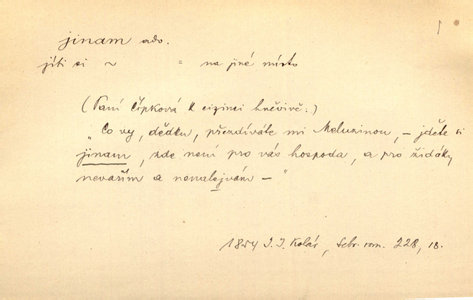 jinam adv.
jíti si ~ = na jiné místo
(Paní Čipková k cizinci hněvivě:)
"Co vy, dědku, přezdíváte mi Meluzinou, – jděte si
jinam, zde není pro vás hospoda, a pro židáky
nevařím a nenalejvám – "
1854 J. J. Kolár, Sebr. rom. 228, 18.